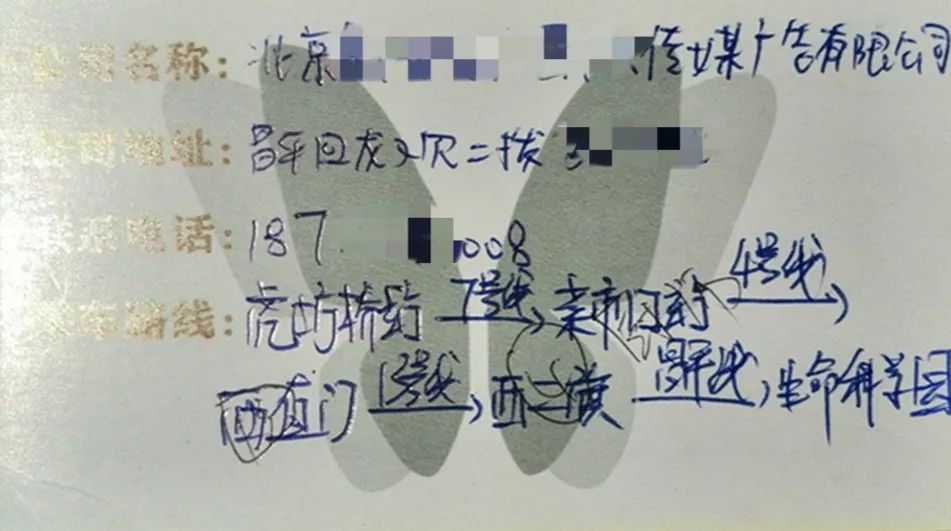 公司名称: 北京 传媒广告有限公司
公司地址: 昌平回龙观欠二拨
联系电话: 187 008
乘车路线: 虎坊桥站 7号线 菜市口站 4号线
西直门 13号线 西二旗 昌平线 生命科学园